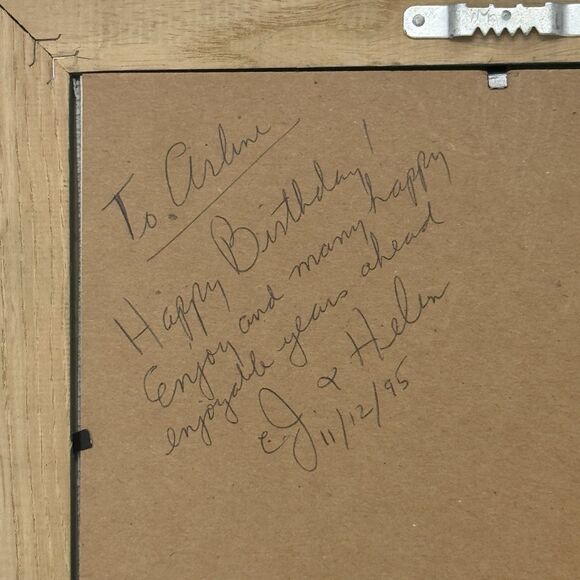 To. Arline
Happy Birthday!
Enjoy and many happy
enjoyable years ahead
E.J. & Helen
11/12/95